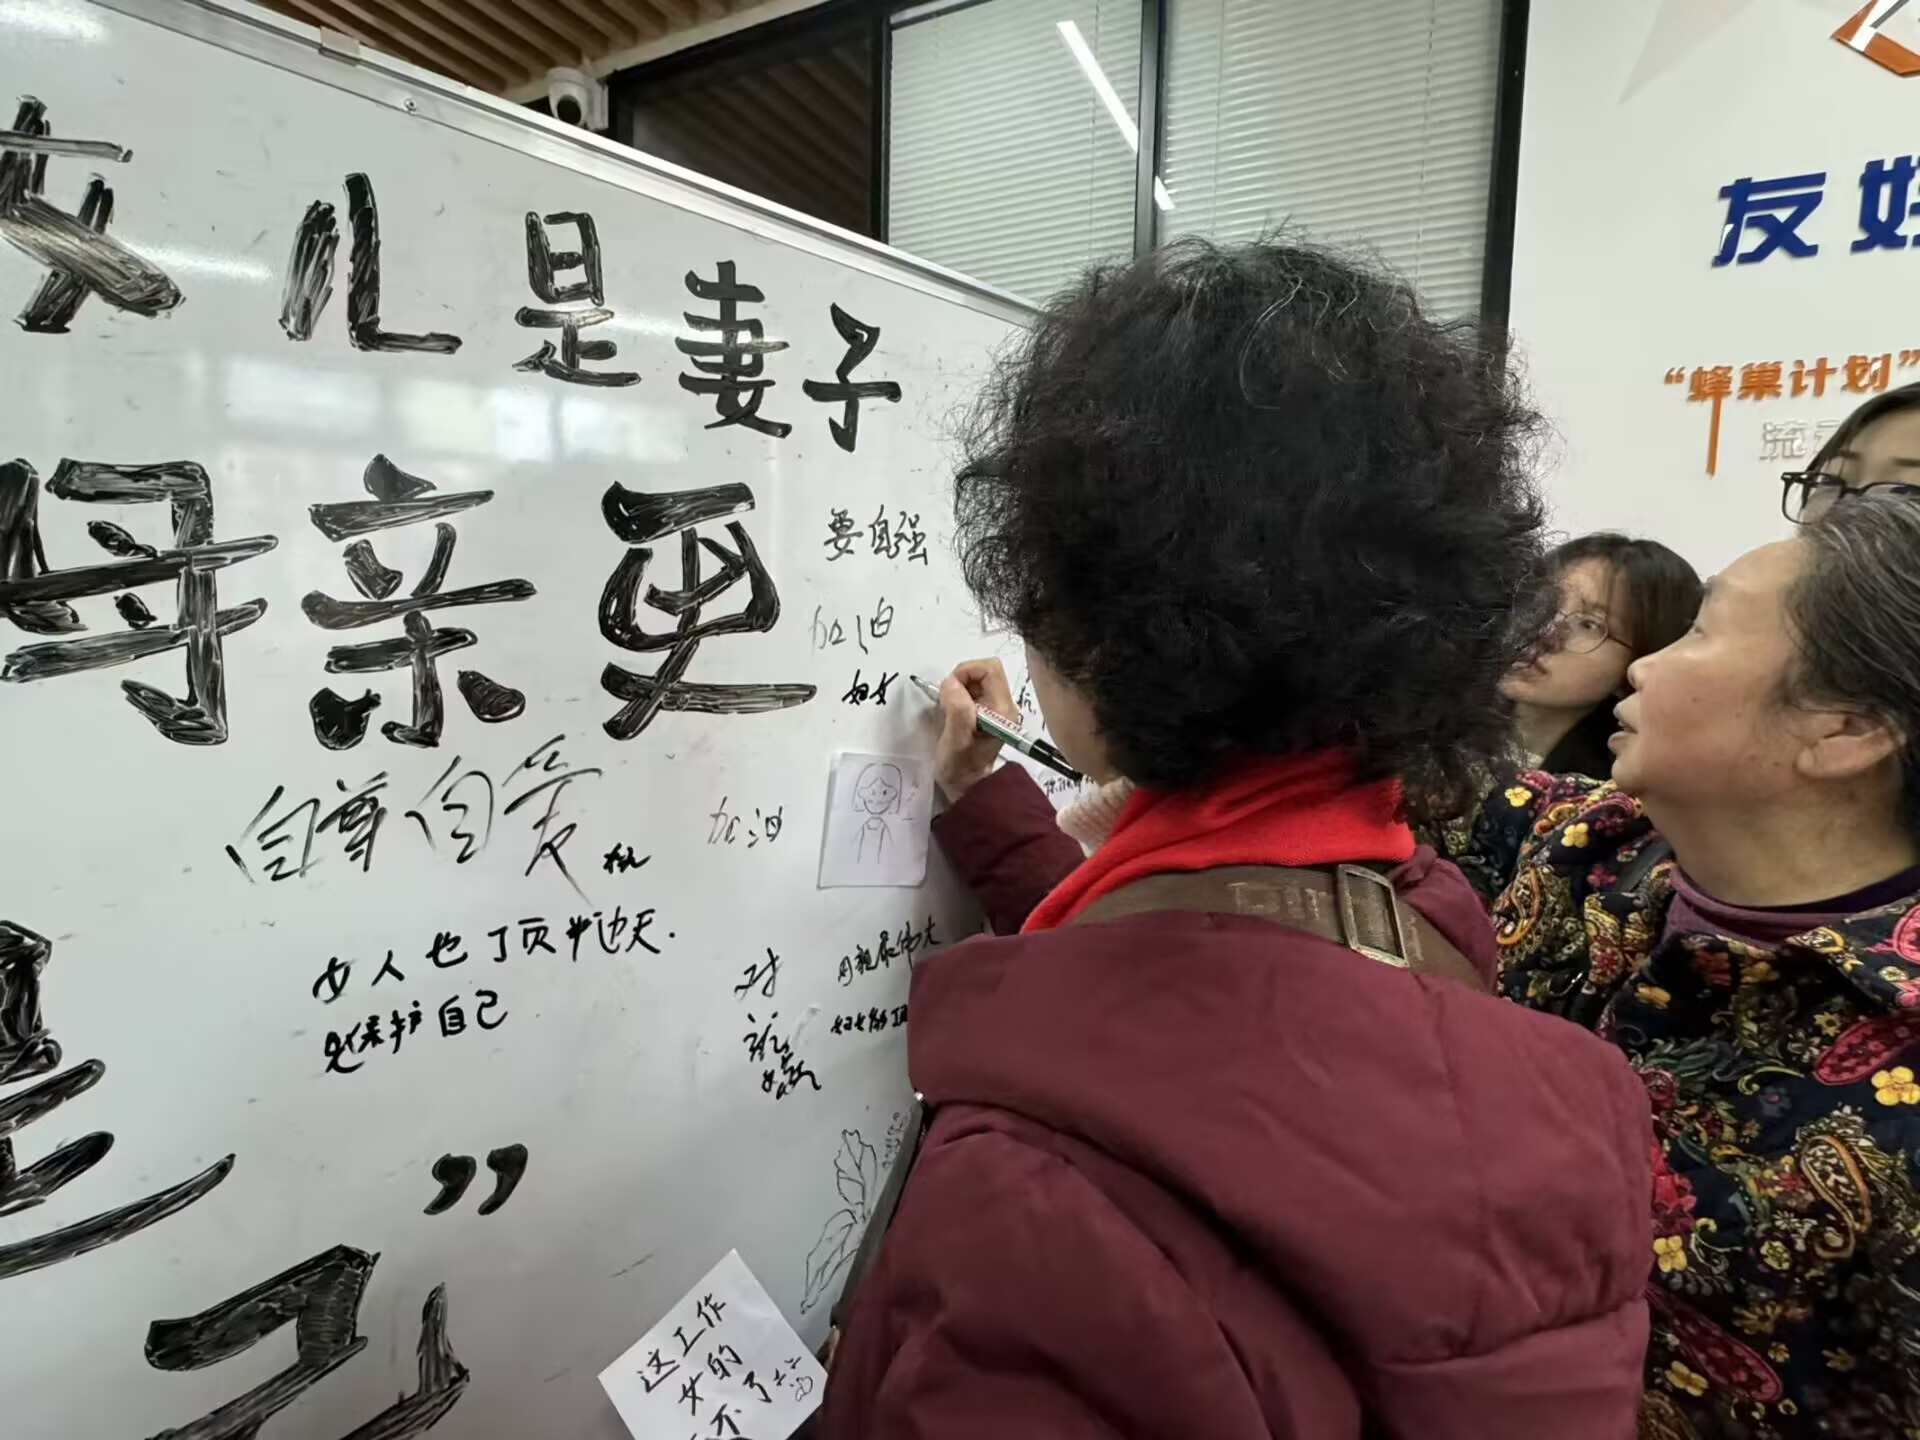 女儿是妻子
母亲更
是
己”
要自强
加油
妇女
自尊自爱
加油
女人也丁页半边天.
保护自己
母亲最伟大
妇女能顶
这工作
女的
不了
友好
“蜂巢计划”
流动